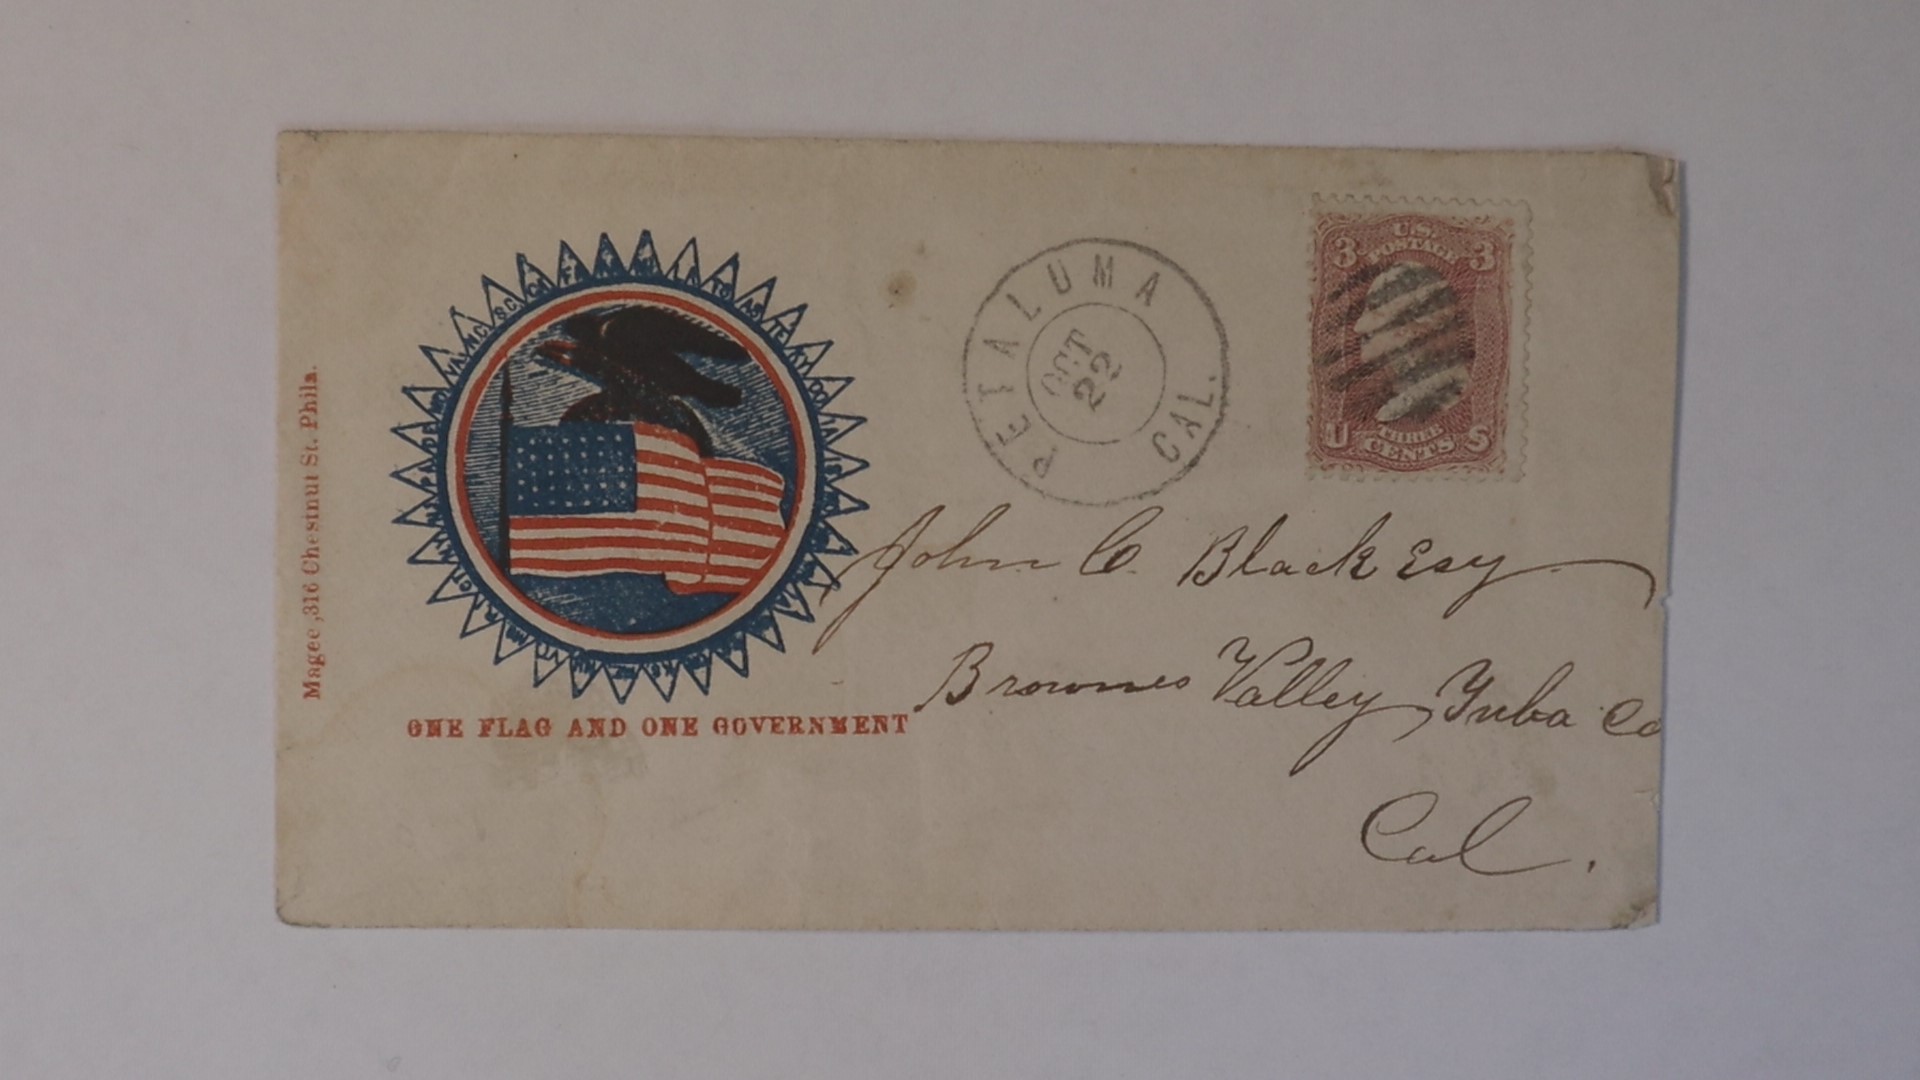 Magee, 316 Chestnut St. Phila.
VA. N.C. S.C. GA FA LA TS AS TE KY
ONE FLAG AND ONE GOVERNMENT
PETALUMA CAL.
OCT
22
3 U.S. 3
POSTAGE
U THREE S
CENTS
John C. Black Esq
Brownes Valley, Yuba Co
Cal.